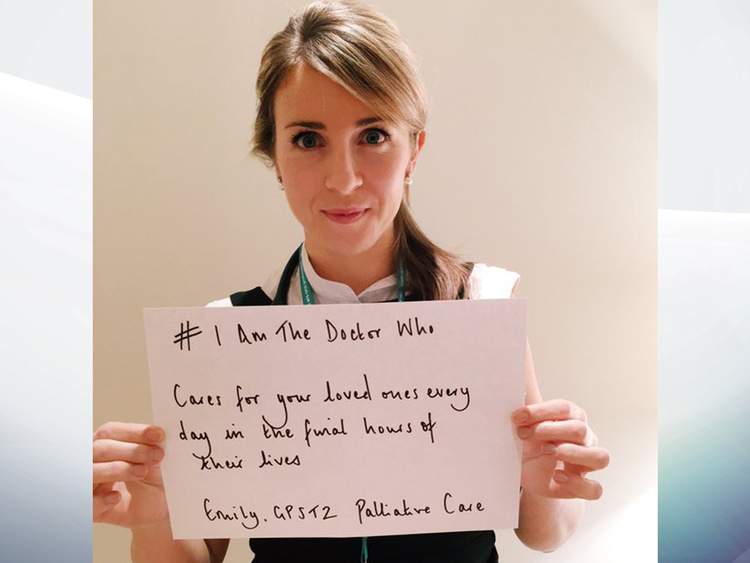 # I Am The Doctor Who
Cares for your loved ones every
day in the final hours of
their lives
Emily. GPST2 Palliative Care